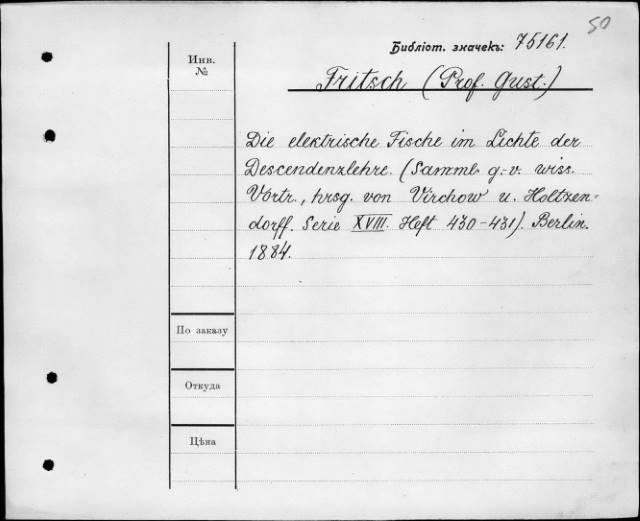 50
Библіот. значекъ: 75161.
Инв.
№
Fritsch (Prof. Gust.)
Die elektrische Fische im Lichte der
Descendenzlehre. (Samml. g.-v. wiss.
Vortr., hrsg. von Virchow u. Holtzen-
dorff. Serie XVIII. Heft 430-431). Berlin.
1884.
По заказу
Откуда
Цѣна